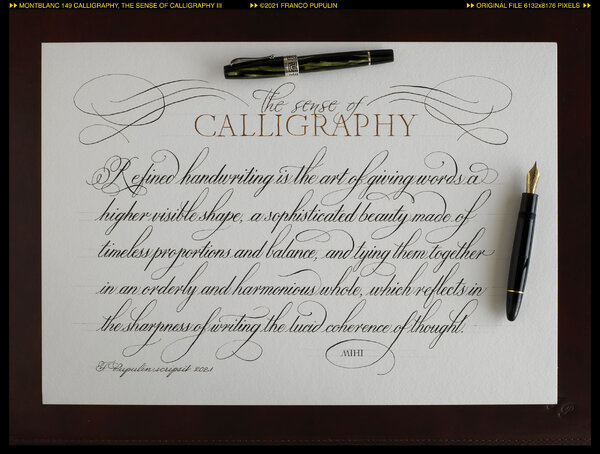 MONTBLANC 149 CALLIGRAPHY, THE SENSE OF CALLIGRAPHY III
©2021 FRANCO PUPULIN
ORIGINAL FILE 6132x8176 PIXELS
the sense of
CALLIGRAPHY
Refined handwriting is the art of giving words a
higher visible shape, a sophisticated beauty made of
timeless proportions and balance, and tying them together
in an orderly and harmonious whole, which reflects in
the sharpness of writing the lucid coherence of thought.
MIHI
F Pupulin scripsit 2021